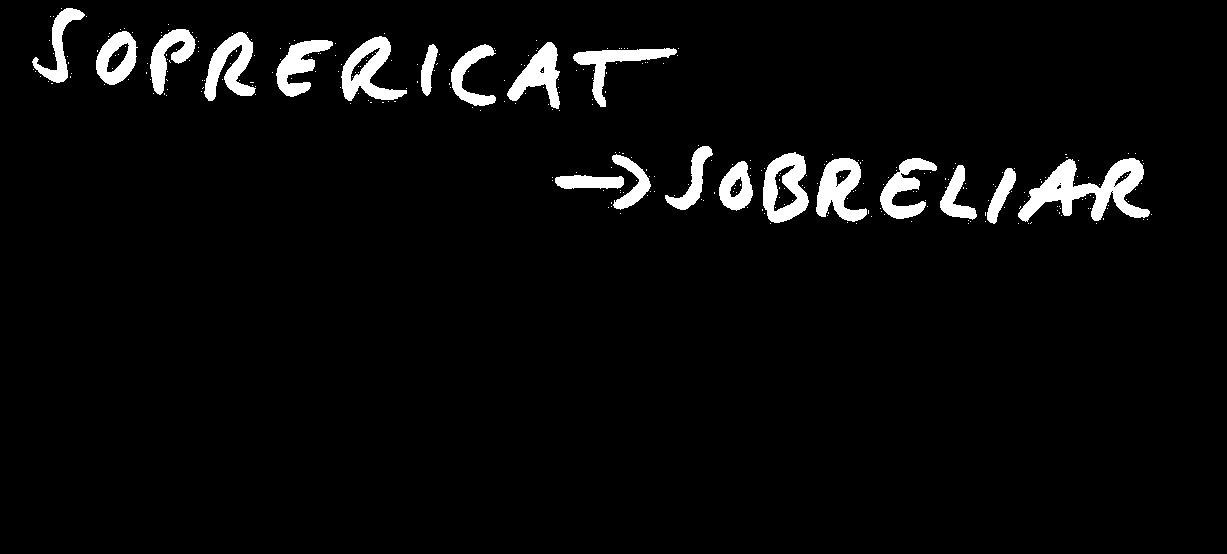 SOPRERICAT
→SOBRELIAR